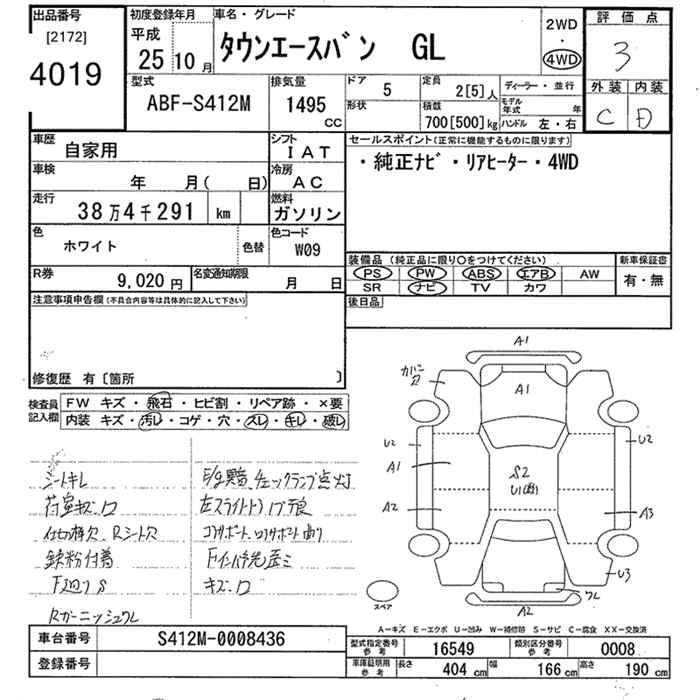 出品番号
[2172]
4019
初度登録年月
平成
25 10月
車名・グレード
タウンエースバン GL
2WD
・
4WD
評価点
3
外装 内装
C D
型式
ABF-S412M
排気量
1495
CC
ドア
5
定員
2[5]人
ディーラー・並行
形状
積載
700[500]kg
モデル年式 年
ハンドル 左・右
車歴
自家用
シフト
IAT
車検
年 月( 日)
冷房
AC
走行
38万4千291 km
燃料
ガソリン
色
ホワイト
色替
色コード
W09
R券
9,020円
名変通知期限
月 日
セールスポイント(正常に機能するものに限ります)
・純正ナビ・リアヒーター・4WD
装備品 (純正品に限り○をつけてください)
PS PW ABS エアB AW
SR ナビ TV カワ
新車保証書
有・無
後日品
注意事項申告欄(不具合内容等は具体的に記入して下さい)
修復歴 有〔箇所 〕
検査員
記入欄
FW キズ・飛石・ヒビ割・リペア跡・×要
内装 キズ・汚レ・コゲ・穴・スレ・キレ・破レ
シートキレ
荷室キズ、ロ
仕切棒欠 Rシート欠
鉄粉付着
F廻りS
Rガーニッシュワレ
E/g異音、チェックランプ点灯
左スライドドア不良
コアサポート、ロアサポート曲り
Fインパネ先歪ミ
キズ、ロ
A1
A1
U2
A1
A2
S2
U2
A3
U3
ワレ
A2
スペア
A-キズ E-エクボ U-凹み W-補修跡 S-サビ C-腐食 XX-交換済
車台番号
S412M-0008436
登録番号
型式指定番号
参考
16549
類別区分番号
参考
0008
車庫証明用
参考
長さ 404 cm 幅 166 cm 高さ 190 cm